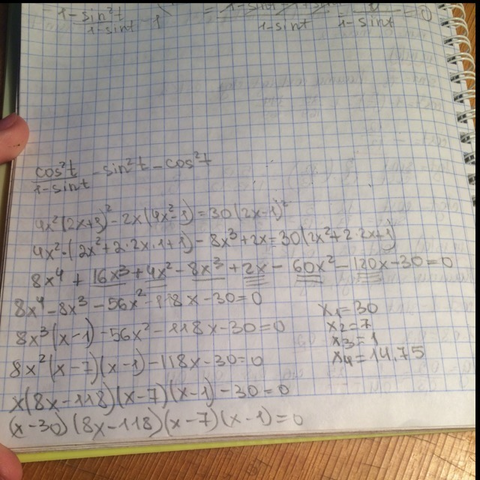 1-sin²t
1-sint
1-sint
cos²t/1-sint - sin²t - cos²t
4x²(2x+1)² - 2x(4x²-1) = 30(2x-1)²
4x²·(2x²+2·2x·1+1) - 8x³+2x=30(2x²+2·2x+1)
8x⁴ + 16x³+4x² - 8x³ + 2x - 60x² - 120x-30=0
8x⁴ - 8x³ - 56x² - 118x-30=0
8x³(x-1) - 56x² - 118x-30=0
8x²(x-7)(x-1) - 118x-30=0
x(8x-118)(x-7)(x-1) - 30=0
(x-30)(8x-118)(x-7)(x-1)=0
x₁=30
x₂=7
x₃=1
x₄=14,75